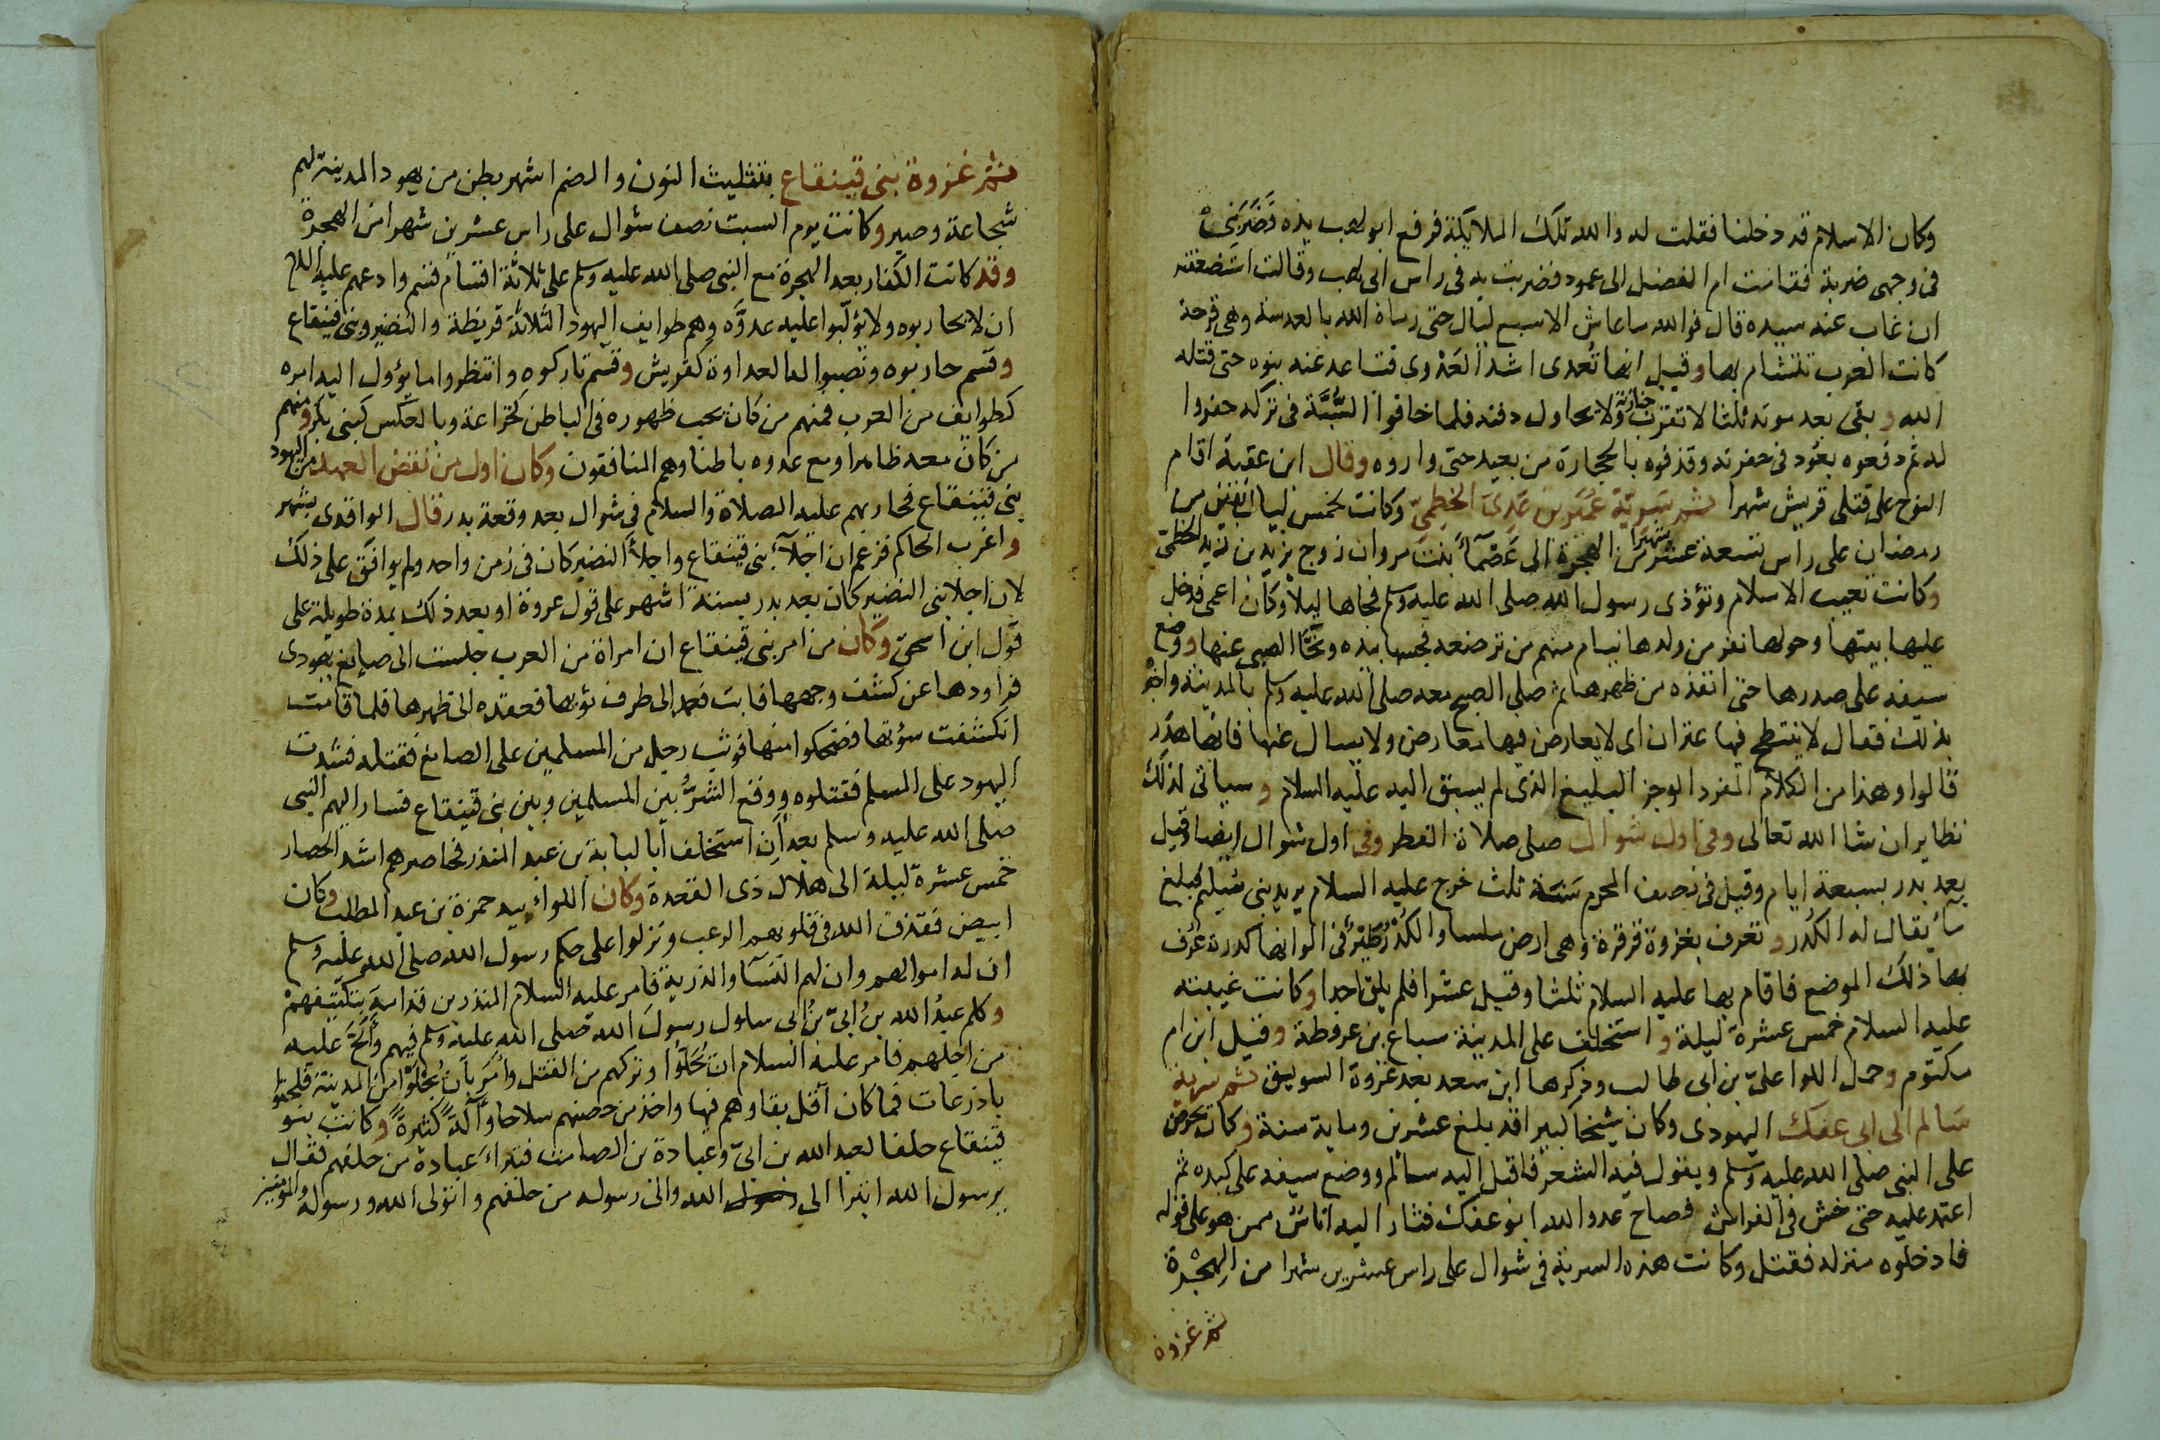 وكان الاسلام قد دخلنا فقلت له والله تلك الملايكة فرفع ابو لهب يده فَضَرَبَنِىْ
فى وجهى ضربة فقامت ام الفضل الى عمود فضربت به فى راس ابى لهب وقالت استضعفته
ان غاب عنه سيده قال فوالله ما عاش الا سبع ليال حتى رماه الله بالعدسة وهى قرحة
كانت العرب تتشام بها وقيل انها تُعدى اشد العَدْوى فتباعد عنه بنوه حتى قتله
الله وبقى بعد موته ثلثا لا تقرب جنازته ولا يحاول دفنه فلما خافوا السُّبَّة فى تركه حفروا
له ثم دفعوه بعود فى حفرته وقذفوه بالحجارة من بعيد حتى واروه وقال ابن عقبة اقام
النوح على قتلى قريش شهرا ثم سرية عُمَيْر بن عَدِىّ الخِطمِىّ وكانت لخمس ليال بقين من
رمضان على راس تسعة عشر شهرا من الهجرة الى عَصْمَاء بنت مروان زوج يزيد بن زيد الخطمىّ
وكانت تعيب الاسلام وتؤذى رسول الله صلى الله عليه وسلم فجاها ليلا وكان اعمى فدخل
عليها بيتها وحولها نفر من ولدها نيام منهم من ترضعه فجسها بيده ونَحَّا الصبى عنها ووضع
سيفه على صدرها حتى انفذه من ظهرها ثم صلى الصبح معه صلى الله عليه وسلم بالمدينة واخبره
بذلك فقال لا ينتطح فيها عنزان اى لا يعارض فيها معارض ولا يسال عنها فانها هَدَر
قالوا وهذا من الكلام المفرد الموجز البليغ الذى لم يسبق اليه عليه السلام وسياتى لذلك
نظاير ان شا الله تعالى وفى اول شوال صلى صلاة الفطر وفى اول شوال ايضا وقيل
بعد بدر بسبعة ايام وقيل فى نصف المحرم سَنَة ثلث خرج عليه السلام يريد بنى سُلَيم فبلغ
مآءً يقال له الكُدْر وتعرف بغزوة قرقرة وهى ارض ملسا والكُدْر طَيْرٌ فى الوانها كدرة عُرف
بها ذلك الموضع فاقام بها عليه السلام ثلثا وقيل عشرا فلم يلق احدا وكانت غيبته
عليه السلام خمس عشرة ليلة واستخلف على المدينة سباع بن عرفطة وقيل ابن ام
مكتوم وحمل اللوا علىّ بن ابى طالب وذكرها ابن سعد بعد غزوة السويق ثم سرية
سَالم الى ابى عفك اليهودى وكان شيخا كبيرا قد بلغ عشرين وماية سنة وكان يحرض
على النبى صلى الله عليه وسلم ويقول فيه الشعر فاقبل اليه سالم ووضع سيفه على كبده ثم
اعتمد عليه حتى خش فى الفراش فصاح عدو الله ابو عفك فثار اليه اناسٌ ممن هو على قوله
فادخلوه منزله فقتل وكانت هذه السرية فى شوال على راس عشرين شهرا من الهِجْرَة
ثم غزوة
ثم غزوة بنى قينقاع بتثليث النون والضم اشهر بطن من يهود المدينة لهم
شجاعة وصبر وكانت يوم السبت نصف شوال على راس عشرين شهرا من الهجرة
وقد كانت الكفار بعد الهجرة مع النبى صلى الله عليه وسلم على ثلاثة اقسام قسم وادعهم عليه السلام
ان لا يحاربوه ولا يؤلّبوا عليه عدوَّه وهم طوايف اليهود الثلاثة قريظة والنضير وبنى قينقاع
وقسم حاربوه ونصبوا له العداوة كقريش وقسم تاركوه وانتظروا ما يؤول اليه امره
كطوايف من العرب فمنهم من كان يحب ظهوره فى الباطن كخزاعة وبالعكس كبنى بكر ومنهم
من كان معه ظاهرا ومع عدوه باطنا وهم المنافقون وكان اول من نقض العهد من اليهود
بنى قينقاع فحاربهم عليه الصلاة والسلام فى شوال بعد وقعة بدر قال الواقدى بشهر
واغرب الحاكم فزعم ان اجلآء بنى قينقاع واجلآ النضير كان فى زمن واحد ولم يوافق على ذلك
لان اجلا بنى النضير كان بعد بدر بستة اشهر على قول عروة او بعد ذلك بمدة طويلة على
قول ابن اسحق وكان من امر بنى قينقاع ان امراة من العرب جلست الى صايغ يهودى
فراودها عن كشف وجهها فابت فعمد الى طرف ثوبها فعقده الى ظهرها فلما قامت
انكشفت سؤتها فضحكوا منها فوثب رجل من المسلمين على الصايغ فقتله فشدت
اليهود على المسلم فقتلوه ووقع الشرُّ بين المسلمين وبين بنى قينقاع فسار اليهم النبى
صلى الله عليه وسلم بعد ان استخلف ابا لبابة بن عبد المنذر فحاصرهم اشد الحصار
خمس عشرة ليلة الى هلال ذى القعدة وكان اللواء بيد حمزة بن عبد المطلب وكان
ابيض فقذف الله فى قلوبهم الرعب ونزلوا على حكم رسول الله صلى الله عليه وسلم
ان له اموالهم وان لهم النسآ والذرية فامر عليه السلام المنذر بن قدامة بتكتيفهمْ
وكلم عبدُ الله بنُ ابىّ بنُ ابى سلول رسولَ الله صلى الله عليه وسلم فيهم وأَلَحَّ عليه
من اجلهم فامر عليه السلام ان يُحَلّوا وتركهم من القتل وأمر بأن يُجْلَوْا من المدينة فلحقوا
باذرعات فما كان اقل بقاوهم فيها واخذ من حصنهم سلاحا وآلَةً كثيرةً وكانت بنو
قينقاع حلفا لعبد الله بن ابىّ وعبادة بن الصامت فتبراء عبادة من حلفهم فقال
يرسول الله اتبرا الى الله والى رسوله من حلفهم واتولى الله ورسوله والمومنين